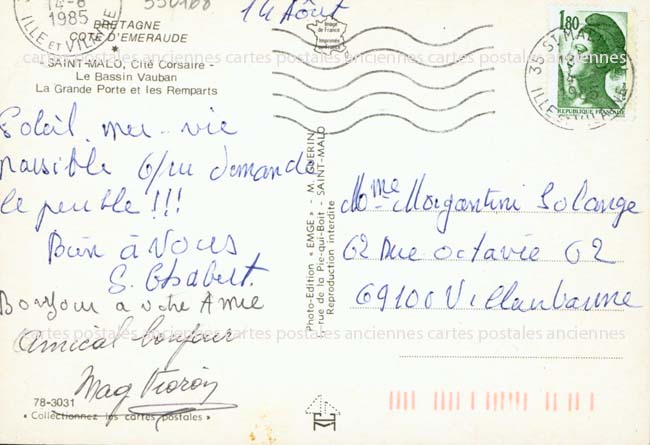 14-8
1985
ILLE ET VILAINE
14 Août
BRETAGNE
COTE D'EMERAUDE
SAINT-MALO, Cité Corsaire -
Le Bassin Vauban
La Grande Porte et les Remparts
Soleil mer - vie
paisible
demande
le peuple !!!
Bien à Vous
S. Chabert.
Bonjour a votre Amie
Amical bonjour
78-3031
« Collectionnez les cartes postales »
Photo-Edition « EMGE » - M. GUERIN
rue de la Pie-qui-Boit - SAINT-MALO
Reproduction interdite
Image
de France
Imprimée
en France
1,80
REPUBLIQUE FRANÇAISE
35 ST MALO
1985
Mme Morgantini Solange
62 Rue Octavie 62
69100 Villeurbanne
cartes postales anciennes cartes postales anciennes
cartes postales anciennes cartes postales anciennes